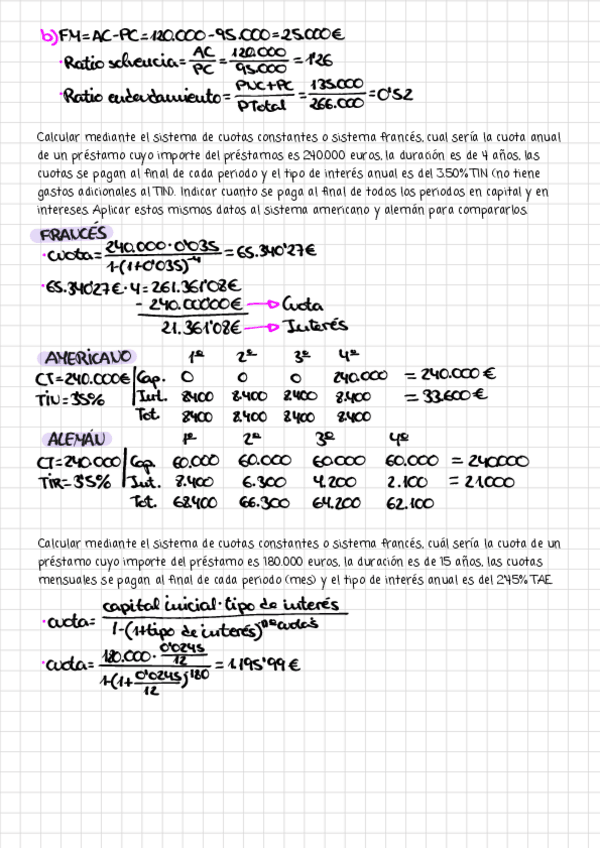 b) FM=AC-PC=120.000-95.000=25.000€
· Ratio solvencia= AC/PC = 120.000/95.000 = 1'26
· Ratio endeudamiento= PNC+PC/PTotal = 135.000/266.000 = 0'52
Calcular mediante el sistema de cuotas constantes o sistema francés, cual sería la cuota anual
de un préstamo cuyo importe del préstamos es 240.000 euros, la duración es de 4 años, las
cuotas se pagan al final de cada periodo y el tipo de interés anual es del 3.50% TIN (no tiene
gastos adicionales al TIN). Indicar cuanto se paga al final de todos los periodos en capital y en
intereses. Aplicar estos mismos datos al sistema americano y alemán para compararlos.
FRANCÉS
· cuota= 240.000·0'035/1-(1+0'035)^-4 = 65.340'27€
· 65.340'27€·4=261.361'08€
- 240.000'00€ → Cuota
21.361'08€ → Interés
AMERICANO 1º 2º 3º 4º
CT=240.000€ Cap. 0 0 0 240.000 = 240.000€
TIN=3'5% Int. 8400 8.400 8400 8.400 = 33.600€
Tot. 8400 8.400 8400 8.400
ALEMÁN 1º 2º 3º 4º
CT=240.000 Cap. 60.000 60.000 60.000 60.000 = 240.000
TIR=3'5% Int. 8.400 6.300 4.200 2.100 = 21.000
Tot. 68.400 66.300 64.200 62.100
Calcular mediante el sistema de cuotas constantes o sistema francés, cuál sería la cuota de un
préstamo cuyo importe del préstamo es 180.000 euros, la duración es de 15 años, las cuotas
mensuales se pagan al final de cada periodo (mes) y el tipo de interés anual es del 2'45% TAE.
· cuota= capital inicial·tipo de interés/1-(1+tipo de interés)^nº cuotas
· cuota= 180.000·0'0245/12/1-(1+0'0245/12)^180 = 1.195'99€